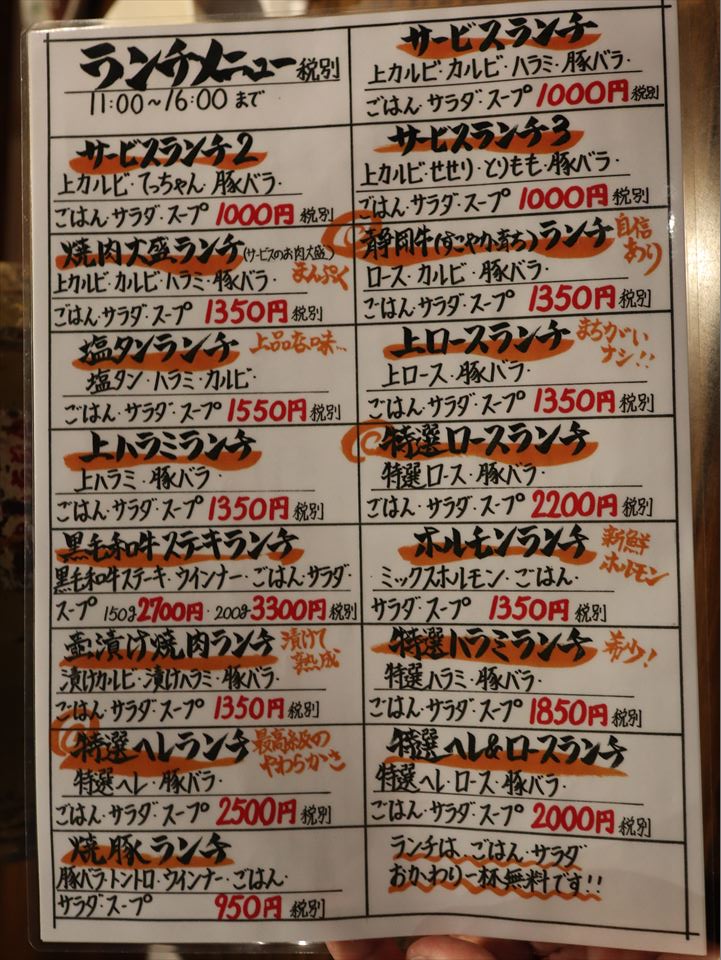 ランチメニュー 税別
11:00～16:00 まで
サービスランチ
上カルビ・カルビ・ハラミ・豚バラ・
ごはん・サラダ・スープ 1000円 税別
サービスランチ2
上カルビ・てっちゃん・豚バラ・
ごはん・サラダ・スープ 1000円 税別
サービスランチ3
上カルビ・せせり・とりもも・豚バラ・
ごはん・サラダ・スープ 1000円 税別
焼肉大盛ランチ(サービスのお肉大盛)
まんぷく
上カルビ・カルビ・ハラミ・豚バラ・
ごはん・サラダ・スープ 1350円 税別
静岡牛(すこやか育ち)ランチ
自信
あり
ロース・カルビ・豚バラ・
ごはん・サラダ・スープ 1350円 税別
塩タンランチ
上品な味…
塩タン・ハラミ・カルビ・
ごはん・サラダ・スープ 1550円 税別
上ロースランチ
まちがい
ナシ!!
上ロース・豚バラ・
ごはん・サラダ・スープ 1350円 税別
上ハラミランチ
上ハラミ・豚バラ・
ごはん・サラダ・スープ 1350円 税別
特選ロースランチ
特選ロース・豚バラ・
ごはん・サラダ・スープ 2200円 税別
黒毛和牛ステキランチ
黒毛和牛ステーキ・ウインナー・ごはん・サラダ・
スープ 150g2700円・200g3300円税別
ホルモンランチ
新鮮
ホルモン
ミックスホルモン・ごはん・
サラダ・スープ 1350円 税別
壺漬け焼肉ランチ
漬けて
熟成
漬けカルビ・漬けハラミ・豚バラ・
ごはん・サラダ・スープ 1350円 税別
特選ハラミランチ
希少!
特選ハラミ・豚バラ・
ごはん・サラダ・スープ 1850円 税別
特選ヘレランチ
最高級の
やわらかさ
特選ヘレ・豚バラ・
ごはん・サラダ・スープ 2500円 税別
特選ヘレ&ロースランチ
特選ヘレ・ロース・豚バラ・
ごはん・サラダ・スープ 2000円 税別
焼豚ランチ
豚バラ・トントロ・ウインナー・ごはん・
サラダ・スープ 950円 税別
ランチは、ごはん・サラダ
おかわり一杯無料です!!